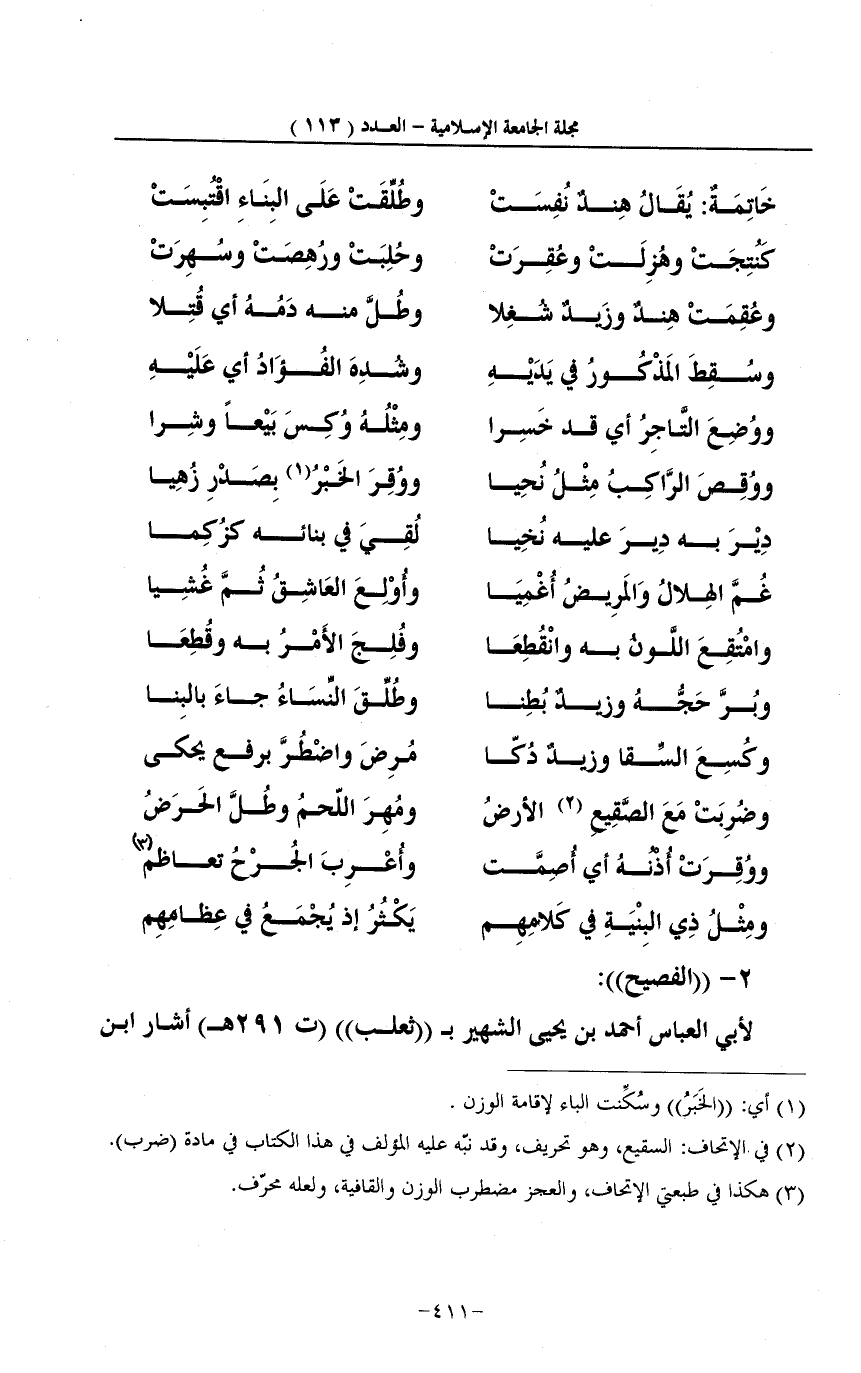 مجلة الجامعة الإسلامية – العدد ( ١١٣ )
خَاتِمَةٌ: يُقَالُ هِنـدٌ نُفِسَـتْ وطُلِّقَـتْ عَلَـى البِنَـاءِ اقْتُبِسَـتْ
كَنُتِجَـتْ وهُزِلَـتْ وعُقِـرَتْ وحُلِبَـتْ ورُهِصَـتْ وسُـهِرَتْ
وعُقِمَـتْ هِنـدٌ وزَيـدٌ شُـغِلا وطُـلَّ منـه دَمُـهُ أي قُتِـلا
وسُـقِطَ المَذْكُـورُ في يَدَيْـهِ وشُـدِهَ الفُـؤَادُ أي عَلَيْـهِ
ووُضِعَ التَّاجِرُ أي قـد خَسِـرا ومِثْلُـهُ وُكِـسَ بَيْعـاً وشِـرا
ووُقِـصَ الرَّاكِـبُ مِثْـلُ نُحِيـا ووُقِرَ الخَبْرُ(١) بِصَـدْرٍ زُهِيـا
دِيْـرَ بـه دِيـرَ عليـه نُخِيـا لُقِـيَ في بنائـه كزُكِمـا
غُـمَّ الهِـلالُ وَالمَرِيـضُ أُغْمِيَـا وأُوْلِـعَ العَاشِـقُ ثُـمَّ غُشِـيا
وامْتُقِـعَ اللَّـونُ بـه وانْقُطِعَـا وفُلِـجَ الأَمْـرُ بـه وقُطِعَـا
وبُـرَّ حَجُّـهُ وزيـدٌ بُطِنـا وطُلِّـقَ النِّسَـاءُ جـاءَ بالبِنـا
وكُسِـعَ السِّـقا وزيـدٌ دُكّـا مُـرِضَ واضْطُـرَّ برفـع يحكى
وضُرِبَتْ مَعَ الصَّقِيعِ (٢) الأرضُ ومُهِرَ اللّحمُ وطُـلَّ الحَـرَضُ
ووُقِـرَتْ أُذْنُـهُ أي أُصِمَّـت وأُعْـرِبَ الجُـرْحُ تعـاظم(٣)
ومِثْـلُ ذِي البِنْيَةِ في كَلامِهِـم يَكْثُرُ إذ يُجْمَـعُ في عِظـامِهِم
٢- ((الفصيح)):
لأبي العباس أحمد بن يحيى الشهير بـ ((ثعلـب)) (ت ٢٩١هـ) أشار ابـن
(١) أي: ((الخَبَرُ)) وسُكِّنت الباء لإقامة الوزن .
(٢) في الإتحاف: السقيع، وهو تحريف، وقد نبّه عليه المؤلف في هذا الكتاب في مادة (ضرب).
(٣) هكذا في طبعتي الإتحاف، والعجز مضطرب الوزن والقافية، ولعله محرّف.
-٤١١-